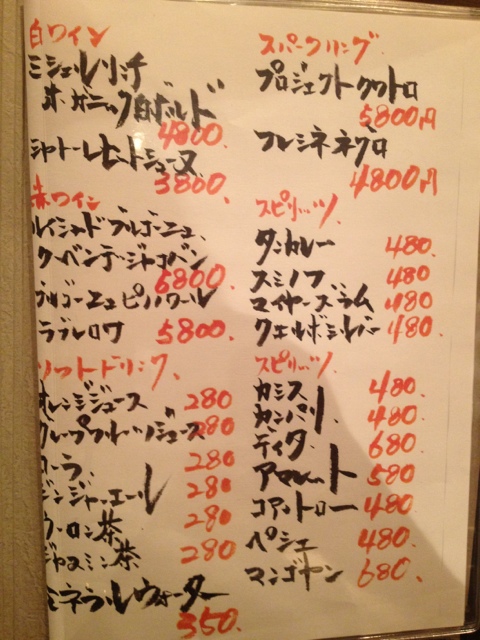 白ワイン
ミシェルレリンチ
オーガニック白ボルド
4800.
シャトーレヒットジューヌ
3800.
赤ワイン
ルイジャド ブルゴーニュ、
クーベンデ・ジャコバン
6800
ブルゴーニュピノノワール
ラブレロワ 5800.
ソフトドリンク、
オレンジジュース 280
グレープフルーツジュース 280
コーラ 280
ジンジャーエール 280
ウーロン茶 280
ジャスミン茶 280
ミネラルウォーター
350.
スパークリング
プロジェクトクワトロ
5800円
フレシネネグロ
4800円
スピリッツ
タンカレー 480.
スミノフ 480
マイヤーズラム 480
クエルボシルバー 480.
スピリッツ
カシス 480.
カンパリ 480.
ディタ 680.
アマレット 580
コアントロー 480.
ペシェ 480.
マンゴヤン 680.